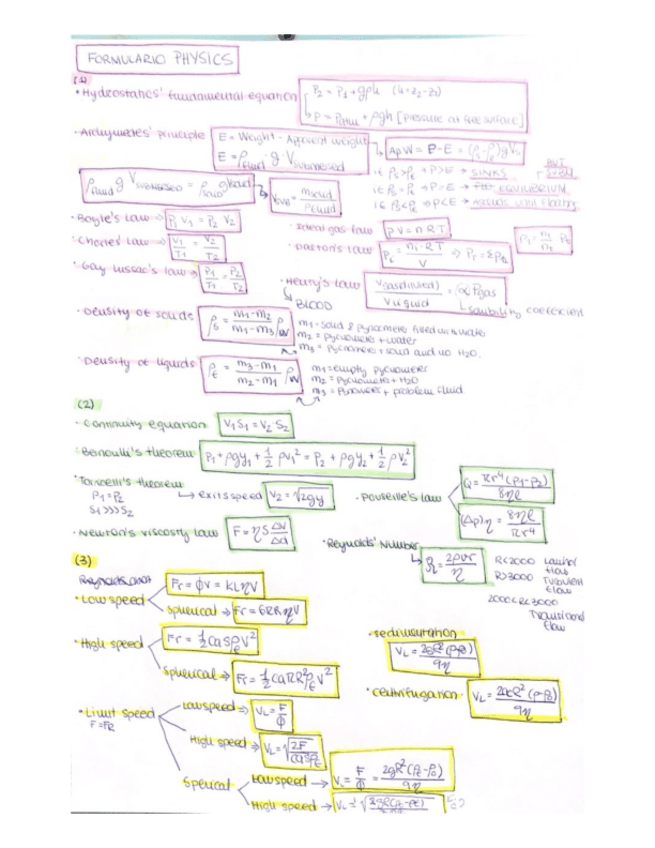 FORMULARIO PHYSICS
(1)
· Hydrostatics' fundamental equation
P₂ = P₁ + gρh (h=z₂-z₁)
↳ P = Patm + ρgh [pressure at free surface]
· Archymedes' principle
E = Weight - Apparent weight
E = ρfluid · g · Vsubmersed
ApW = P - E = (ρs-ρf)gVs
ρfluid g Vsubmersed = ρsolid g Vsolid
Vsub = msolid / ρfluid
if ρs>ρf → P>E → SINKS
if ρs=ρf → P=E → EQUILIBRIUM
if ρs<ρf → P<E → Ascends until floating
· Boyle's Law → P₁V₁ = P₂V₂
· Charles' Law → V₁/T₁ = V₂/T₂
· Gay Lussac's law → P₁/T₁ = P₂/T₂
· Ideal gas law PV = nRT
· Dalton's law Pi = ni·RT / V → PT = ΣPi
· Henry's law
↳ BLOOD
V gas dissolved / V liquid = α Pgas
↳ solubility coefficient
· Density of solids
ρs = (m₁-m₂) / (m₁-m₃) ρw
m₁ = solid & pycnometer filled with water
m₂ = pycnometer + water
m₃ = pycnometer + solid and no H₂O.
· Density of liquids
ρf = (m₃-m₁) / (m₂-m₁) ρw
m₁ = empty pycnometer
m₂ = pycnometer + H₂O
m₃ = Pycnometer + problem fluid
(2)
· Continuity equation V₁S₁ = V₂S₂
· Bernoulli's theorem P₁ + ρgy₁ + 1/2 ρv₁² = P₂ + ρgy₂ + 1/2 ρv₂²
· Torricelli's theorem
P₁ = P₂
S₁ >>> S₂
↳ exit speed V₂ = √2gy
· Poiseuille's law
Q = πr⁴(P₁-P₂) / 8ηℓ
(Δp)η = 8ηℓ / πr⁴
· Newton's viscosity law F = ηS Δv/Δd
· Reynolds' Number
R = 2ρvr / η
R<2000 Laminar flow
R>3000 Turbulent flow
2000<R<3000
Transitional flow
(3)
· Low speed
Fr = ϕv = KLηV
Spherical → Fr = 6πRηV
· High speed
Fr = 1/2 CaSρfV²
Spherical → Fr = 1/2 CaπR²ρfV²
· sedimentation
VL = 2gR²(ρ-ρ₀) / 9η
· centrifugation
VL = 2acR²(ρ-ρ₀) / 9η
· Limit speed
F = FR
Low speed → VL = F/ϕ
High speed → VL = √2F / CaSρf
Spherical
Low speed → VL = F/ϕ = 2gR²(ρ-ρ₀) / 9η
High speed →